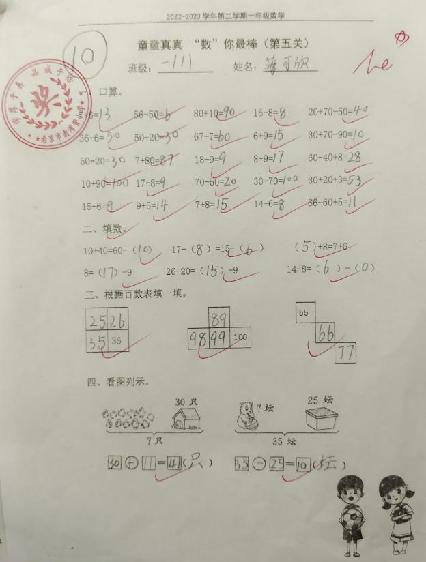 2022-2023学年第二学期一年级数学
10
童童真真 “数”你最棒（第五关）
班级： 姓名：
口算。
=13 56-50=6 80+10=90 15-8=8 20+70-50=40
=30 50-20=30 67-7=60 6+9=15 80+70-90=10
50-20=30 7+80=87 18-9=9 8+9=17 60-40+8=28
10+90=100 17-8=9 70-50=20 30+70=100 30+20+3=53
15-6=9 9+5=14 7+8=15 14-6=8 36-60+5=11
二、填数。
10+40=60-(10) 17-(8)=15-(6) (5)+8=7+6
8=(17)-9 26-20=(15)-9 14-8=(6)-(0)
三、根据百数表填一填。
25 26 89 55
35 36 98 99 100 66
77
四、看图列示。
30 只 ?坛 25 坛
?只 35 坛
30+11=41(只) 35-25=10(坛)